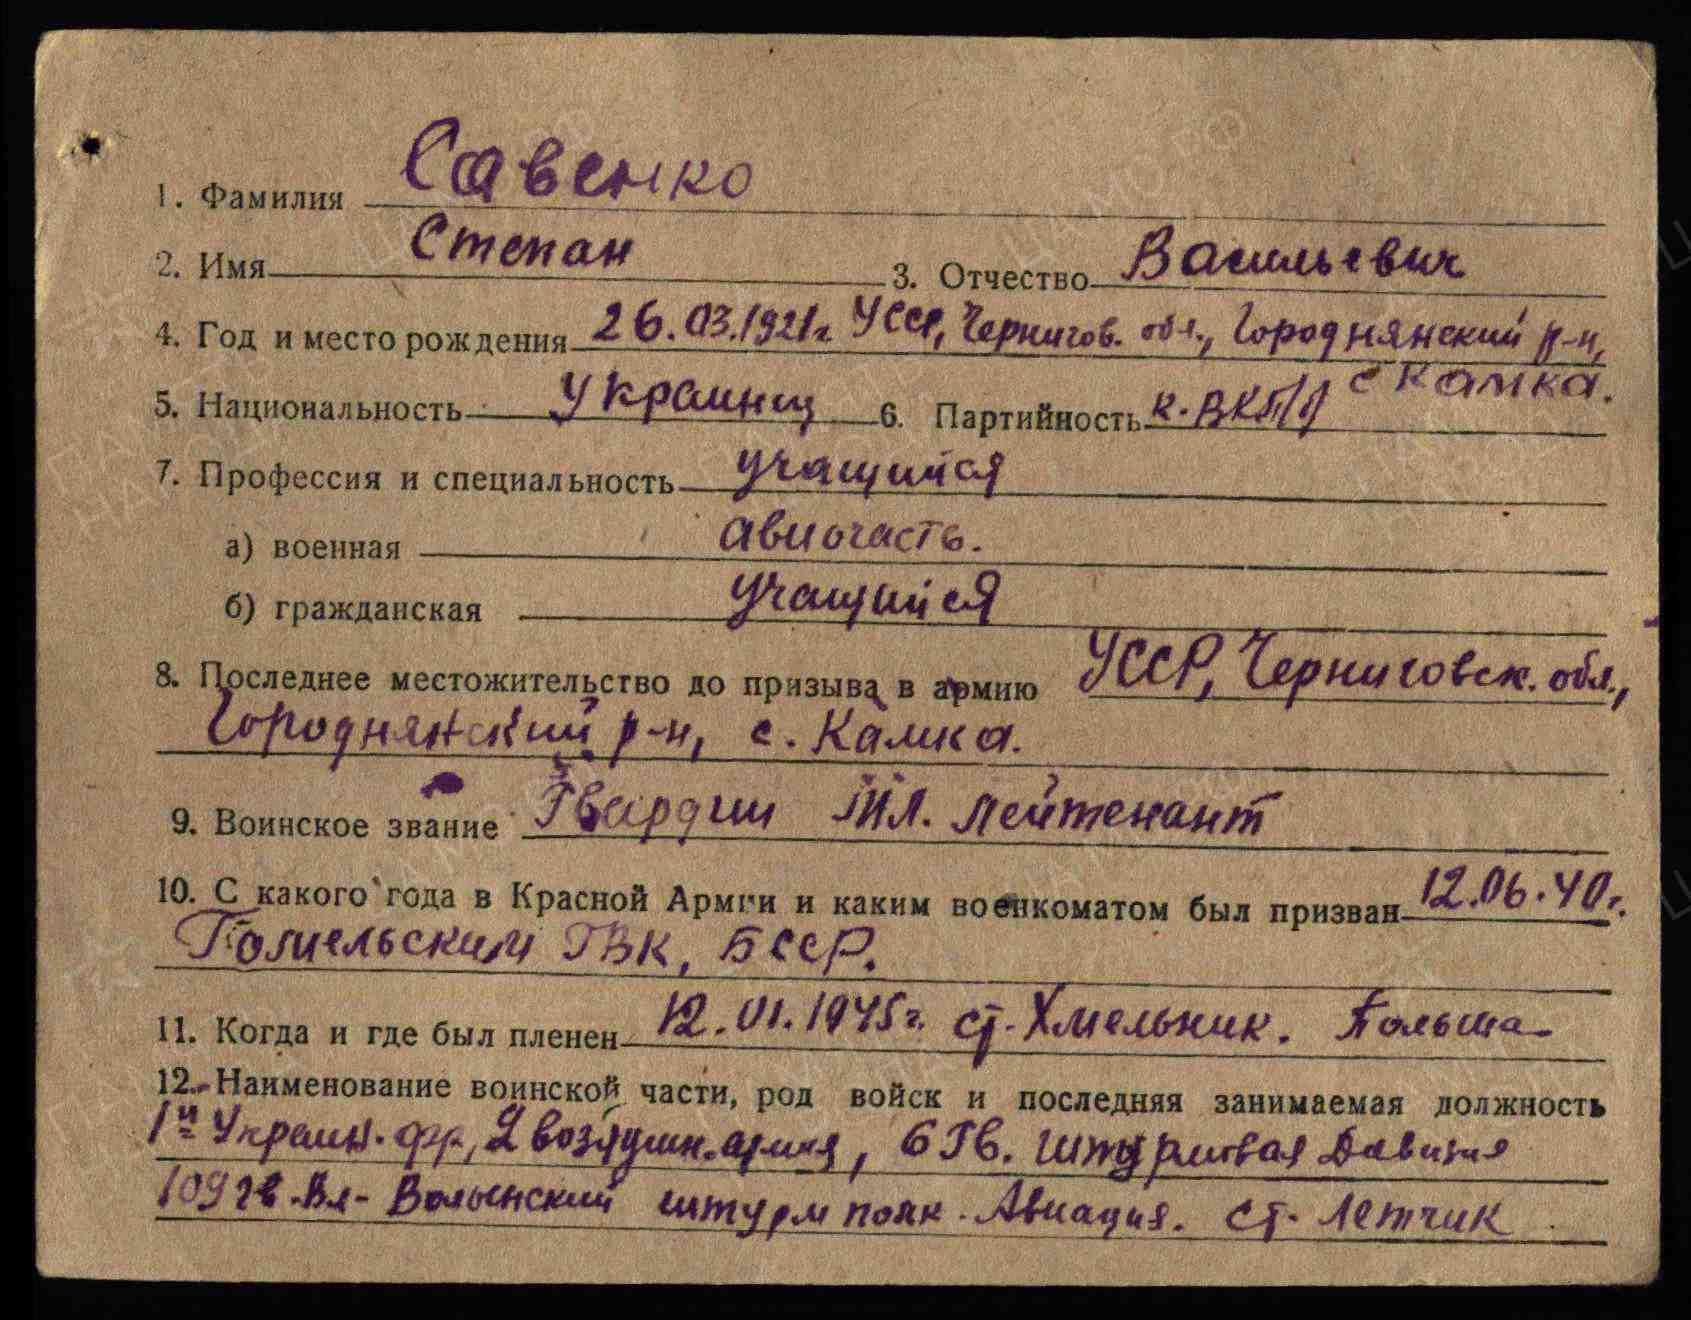 1. Фамилия Савенко
2. Имя Степан 3. Отчество Васильевич
4. Год и место рождения 26.03.1921г УССР, Чернигов. обл., Городнянский р-н,
с Камка.
5. Национальность Украинец 6. Партийность к. ВКП/б/
7. Профессия и специальность учащийся
а) военная авиочасть.
б) гражданская учащийся
8. Последнее местожительство до призыва в армию УССР, Черниговск. обл.,
Городнянский р-н, с. Камка.
9. Воинское звание Гвардии Мл. лейтенант
10. С какого года в Красной Армии и каким военкоматом был призван 12.06.40г.
Гомельским ГВК, БССР.
11. Когда и где был пленен 12.01.1945г. ст. Хмельник. Польша
12. Наименование воинской части, род войск и последняя занимаемая должность
1й Украин. фр, 2 воздушн. армия, 6 Гв. штурмовая Дивизия
109 гв. Вл- Волынский штурм полк. Авиация. ст. Летчик